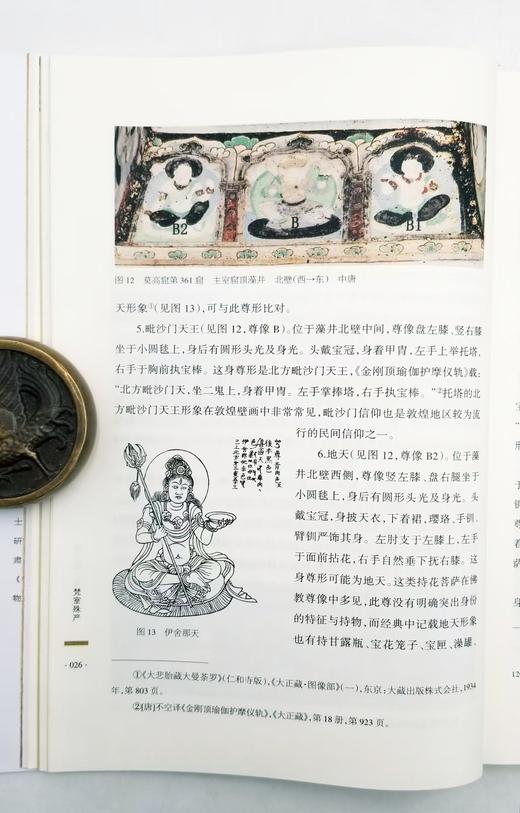 B2
B
B1
图 12 莫高窟第 361 窟 主室窟顶藻井 北壁(西→东) 中唐
天形象①(见图 13),可与此尊形比对。
5.毗沙门天王(见图 12,尊像 B)。位于藻井北壁中间,尊像盘左膝、竖右膝
坐于小圆毯上,身后有圆形头光及身光。头戴宝冠,身着甲胄,左手上举托塔,
右手于胸前执宝棒。这身尊形是北方毗沙门天王,《金刚顶瑜伽护摩仪轨》载:
“北方毗沙门天,坐二鬼上,身着甲胄。左手掌捧塔,右手执宝棒。”②托塔的北
方毗沙门天王形象在敦煌壁画中非常常见,毗沙门信仰也是敦煌地区较为流
行的民间信仰之一。
6.地天(见图 12,尊像 B2)。位于藻
井北壁西侧,尊像竖左膝、盘右腿坐于
小圆毯上,身后有圆形头光及身光。头
戴宝冠,身披天衣,下着裙,璎珞、手钏、
臂钏严饰其身。左肘支于左膝上,左手
于面前拈花,右手自然垂下抚右膝。这
身尊形可能为地天。这类持花菩萨在佛
教尊像中多见,此尊没有明确突出身份
的特征与持物,而经典中记载地天形象
也有持甘露瓶、宝花笼子、宝匣、澡罐、
图 13 伊舍那天
①《大悲胎藏大曼荼罗》(仁和寺版),《大正藏·图像部》(一),东京:大藏出版株式会社,1934
年,第 803 页。
②[唐]不空译《金刚顶瑜伽护摩仪轨》,《大正藏》,第 18 册,第 923 页。
梵室殊严
·026·
士研肃《物